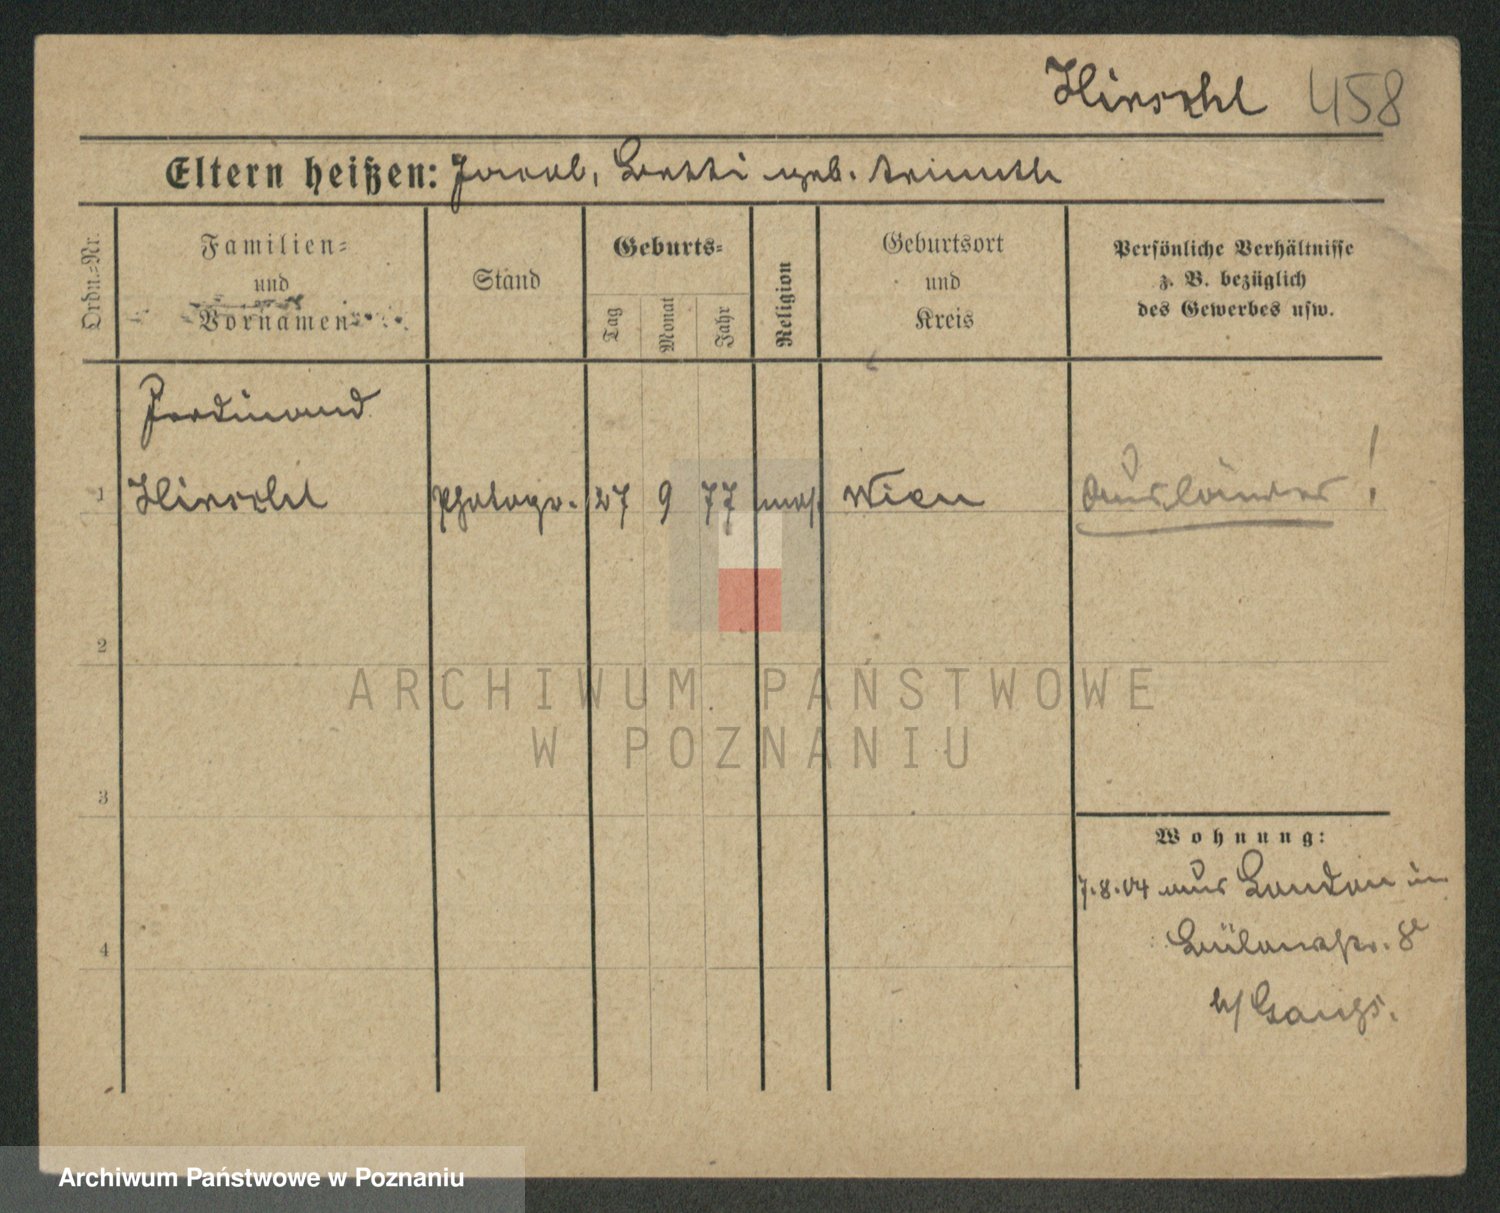 Hirschl 458
Eltern heißen: Jacob, Betti geb.
Ordn.=Nr.
Familien=
und
Vornamen
Stand
Geburts=
Tag
Monat
Jahr
Religion
Geburtsort
und
Kreis
Persönliche Verhältnisse
z. B. bezüglich
des Gewerbes usw.
Ferdinand
1 Hirschl Photogr. 27 9 77 mos. Wien Ausländer!
2
3
4
Wohnung:
7.8.04 aus London in
Bülowstr. 8
b/
ARCHIWUM PAŃSTWOWE
W POZNANIU
Archiwum Państwowe w Poznaniu